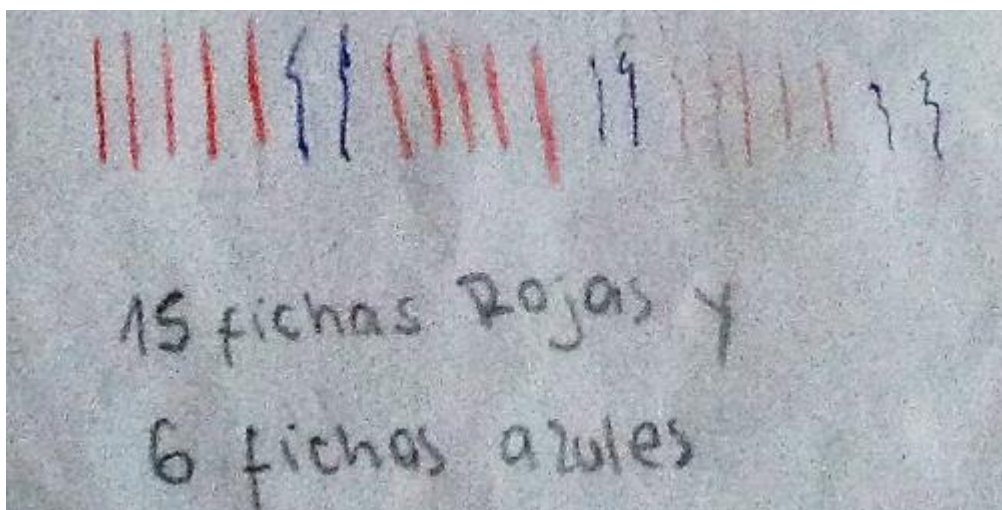 15 fichas Rojas y
6 fichas azules